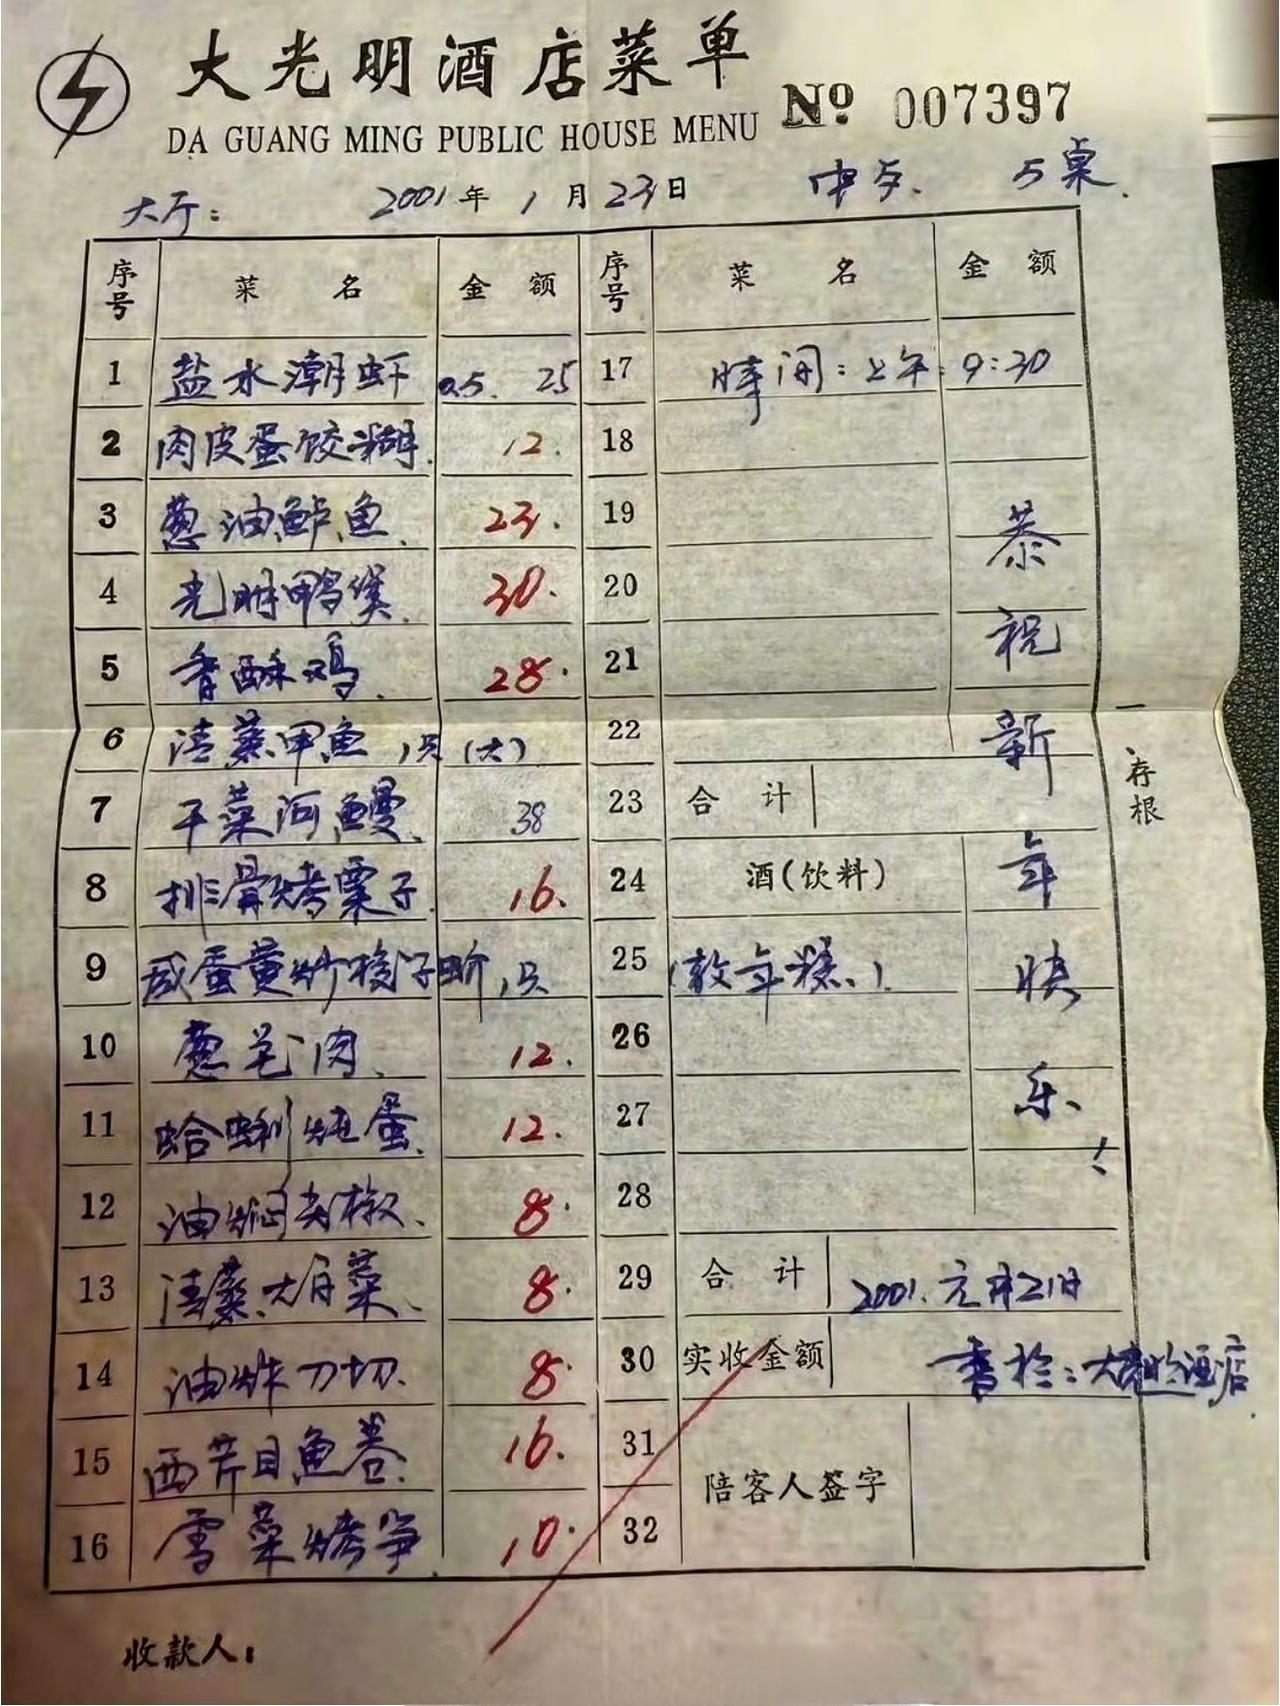 大光明酒店菜单
DA GUANG MING PUBLIC HOUSE MENU
№ 007397
大厅: 2001年1月23日 中与. 5桌.
序号 菜名 金额 序号 菜名 金额
1 盐水潮虾 0.5. 25 17 時间:上午:9:30
2 肉皮蛋饺糊. 12. 18
3 葱油鲈鱼. 23. 19 恭
4 光明鸭煲. 30. 20 祝
5 香酥鸡. 28. 21
6 清蒸甲鱼 1只(大) 22 新
7 干菜河鳗. 38 23 合计
8 排骨烤栗子. 16. 24 酒(饮料) 年
9 咸蛋黄炒梭子蟹1只 25 (敬年糕.) 快
10 葱毛肉. 12. 26
11 蛤蜊炖蛋. 12. 27 乐!
12 油焖尖椒. 8. 28
13 清蒸大目菜. 8. 29 合计 2001.元月21日
14 油炸刀切. 8. 30 实收金额 書於:大光明酒店.
15 西芹目鱼卷. 16. 31
陪客人签字
16 雪菜烤笋 10. 32
一存根
收款人: